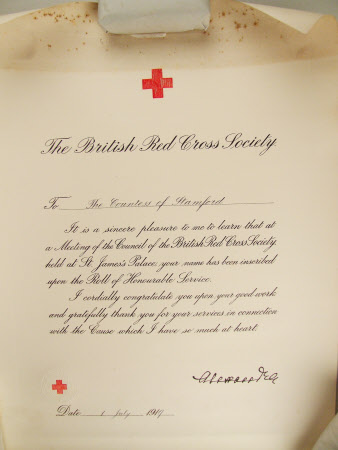 The British Red Cross Society
To The Countess of Stamford
It is a sincere pleasure to me to learn that at
a Meeting of the Council of the British Red Cross Society,
held at St. James's Palace, your name has been inscribed
upon the Roll of Honourable Service.
I cordially congratulate you upon your good work
and gratefully thank you for your services in connection
with the Cause which I have so much at heart.
Alexandra
Date 1 July 19